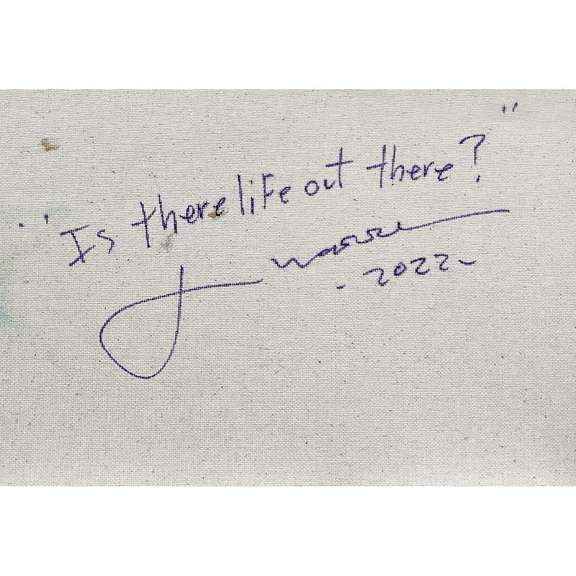 "Is there life out there?"
-2022-